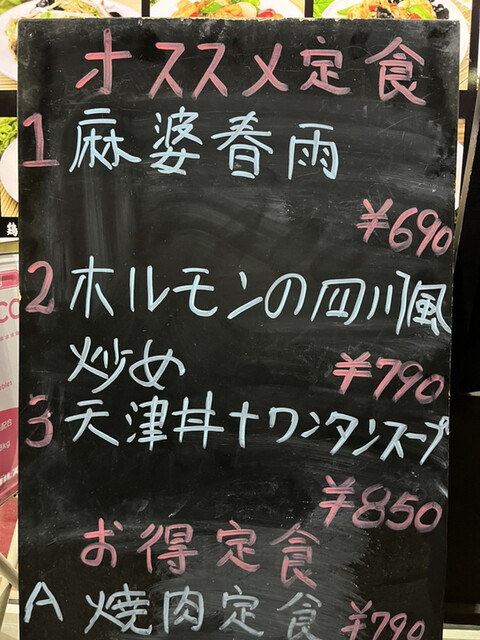 オススメ定食
1 麻婆春雨
¥690
2 ホルモンの四川風
炒め ¥790
3 天津丼+ワンタンスープ
¥850
お得定食
A 焼肉定食 ¥790